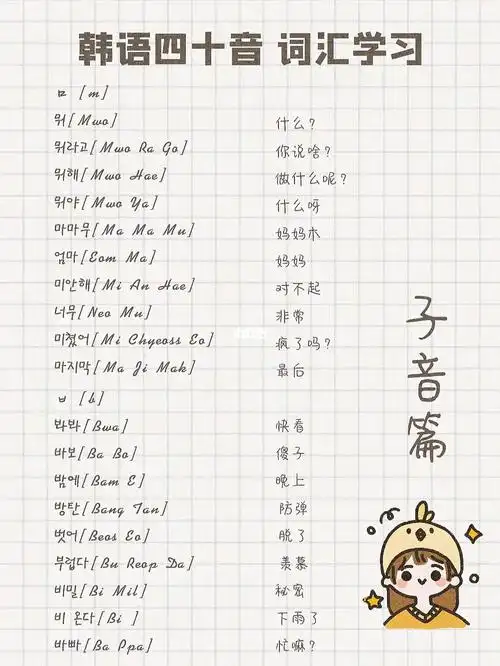 韩语四十音 词汇学习
ㅁ [m]
뭐[Mwo] 什么?
뭐라고[Mwo Ra Go] 你说啥?
뭐해[Mwo Hae] 做什么呢?
뭐야[Mwo Ya] 什么呀
마마무[Ma Ma Mu] 妈妈木
엄마[Eom Ma] 妈妈
미안해[Mi An Hae] 对不起
너무[Neo Mu] 非常
미쳤어[Mi Chyeoss Eo] 疯了吗?
마지막[Ma Ji Mak] 最后
ㅂ [b]
봐봐[Bwa] 快看
바보[Ba Bo] 傻子
밤에[Bam E] 晚上
방탄[Bang Tan] 防弹
벗어[Beos Eo] 脱了
부럽다[Bu Reop Da] 羡慕
비밀[Bi Mil] 秘密
비 온다[Bi ] 下雨了
바빠[Ba Ppa] 忙嘛?
子音篇